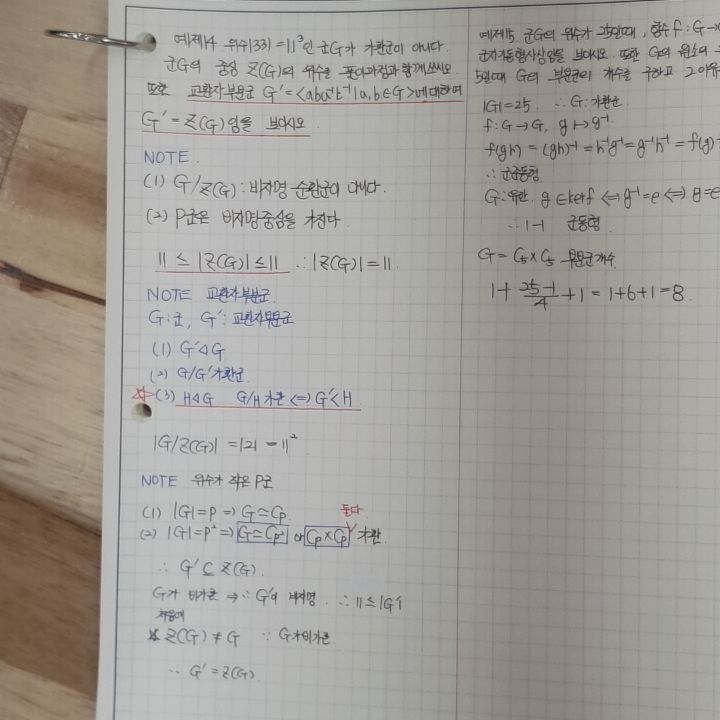 예제14 위수1331=11³인 군G가 가환군이 아니다.
군G의 중심 Z(G)의 위수를 풀이과정과 함께 쓰시오.
또한 교환자부분군 G'=<aba⁻¹b⁻¹|a,b∈G>에 대하여
G'=Z(G)임을 보이시오.
NOTE.
(1) G/Z(G): 비자명 순환군이 아니다.
(2) P군은 비자명중심을 가진다.
11 ≤ |Z(G)| ≤ 11 ∴|Z(G)|=11.
NOTE 교환자부분군.
G:군, G': 교환자부분군
(1) G'⊲G
(2) G/G' 가환군.
☆(3) H⊲G G/H 가환 <=> G'<H
|G/Z(G)| =121 =11²
NOTE 위수가 작은 P군
(1) |G|=P => G≃Cp 둘다
(2) |G|=P² => G≃Cp² or Cp×Cp 가환
∴ G' ⊆ Z(G).
G가 비가환 => ∴ G'이 비자명. ∴ 11≤|G'|
Z(G) ≠ G ∵ G가 비가환
∴ G'=Z(G).
예제15 군G의 위수가 25일때, 함수 f: G→
군자기동형사상임을 보이시오. 또한 G의 원소의
5일때 G의 부분군의 개수를 구하고 그 이유
|G|=25 ∴ G: 가환군
f: G→G, g↦g⁻¹
f(gh) = (gh)⁻¹ = h⁻¹g⁻¹ = g⁻¹h⁻¹ = f(g)
∴ 군준동형
G:유한 g∈kerf <=> g⁻¹=e <=> g=e
∴ 1-1 군동형.
G = C₅×C₅ 부분군개수.
1+ (25-1)/4 +1 = 1+6+1 = 8.